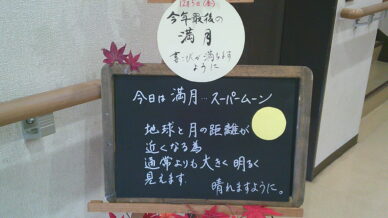 12月5日(金)
今年最後の
満月
喜びが満ちます
ように
今日は満月…スーパームーン
地球と月の距離が
近くなる為
通常よりも大きく明るく
見えます。
晴れますように。